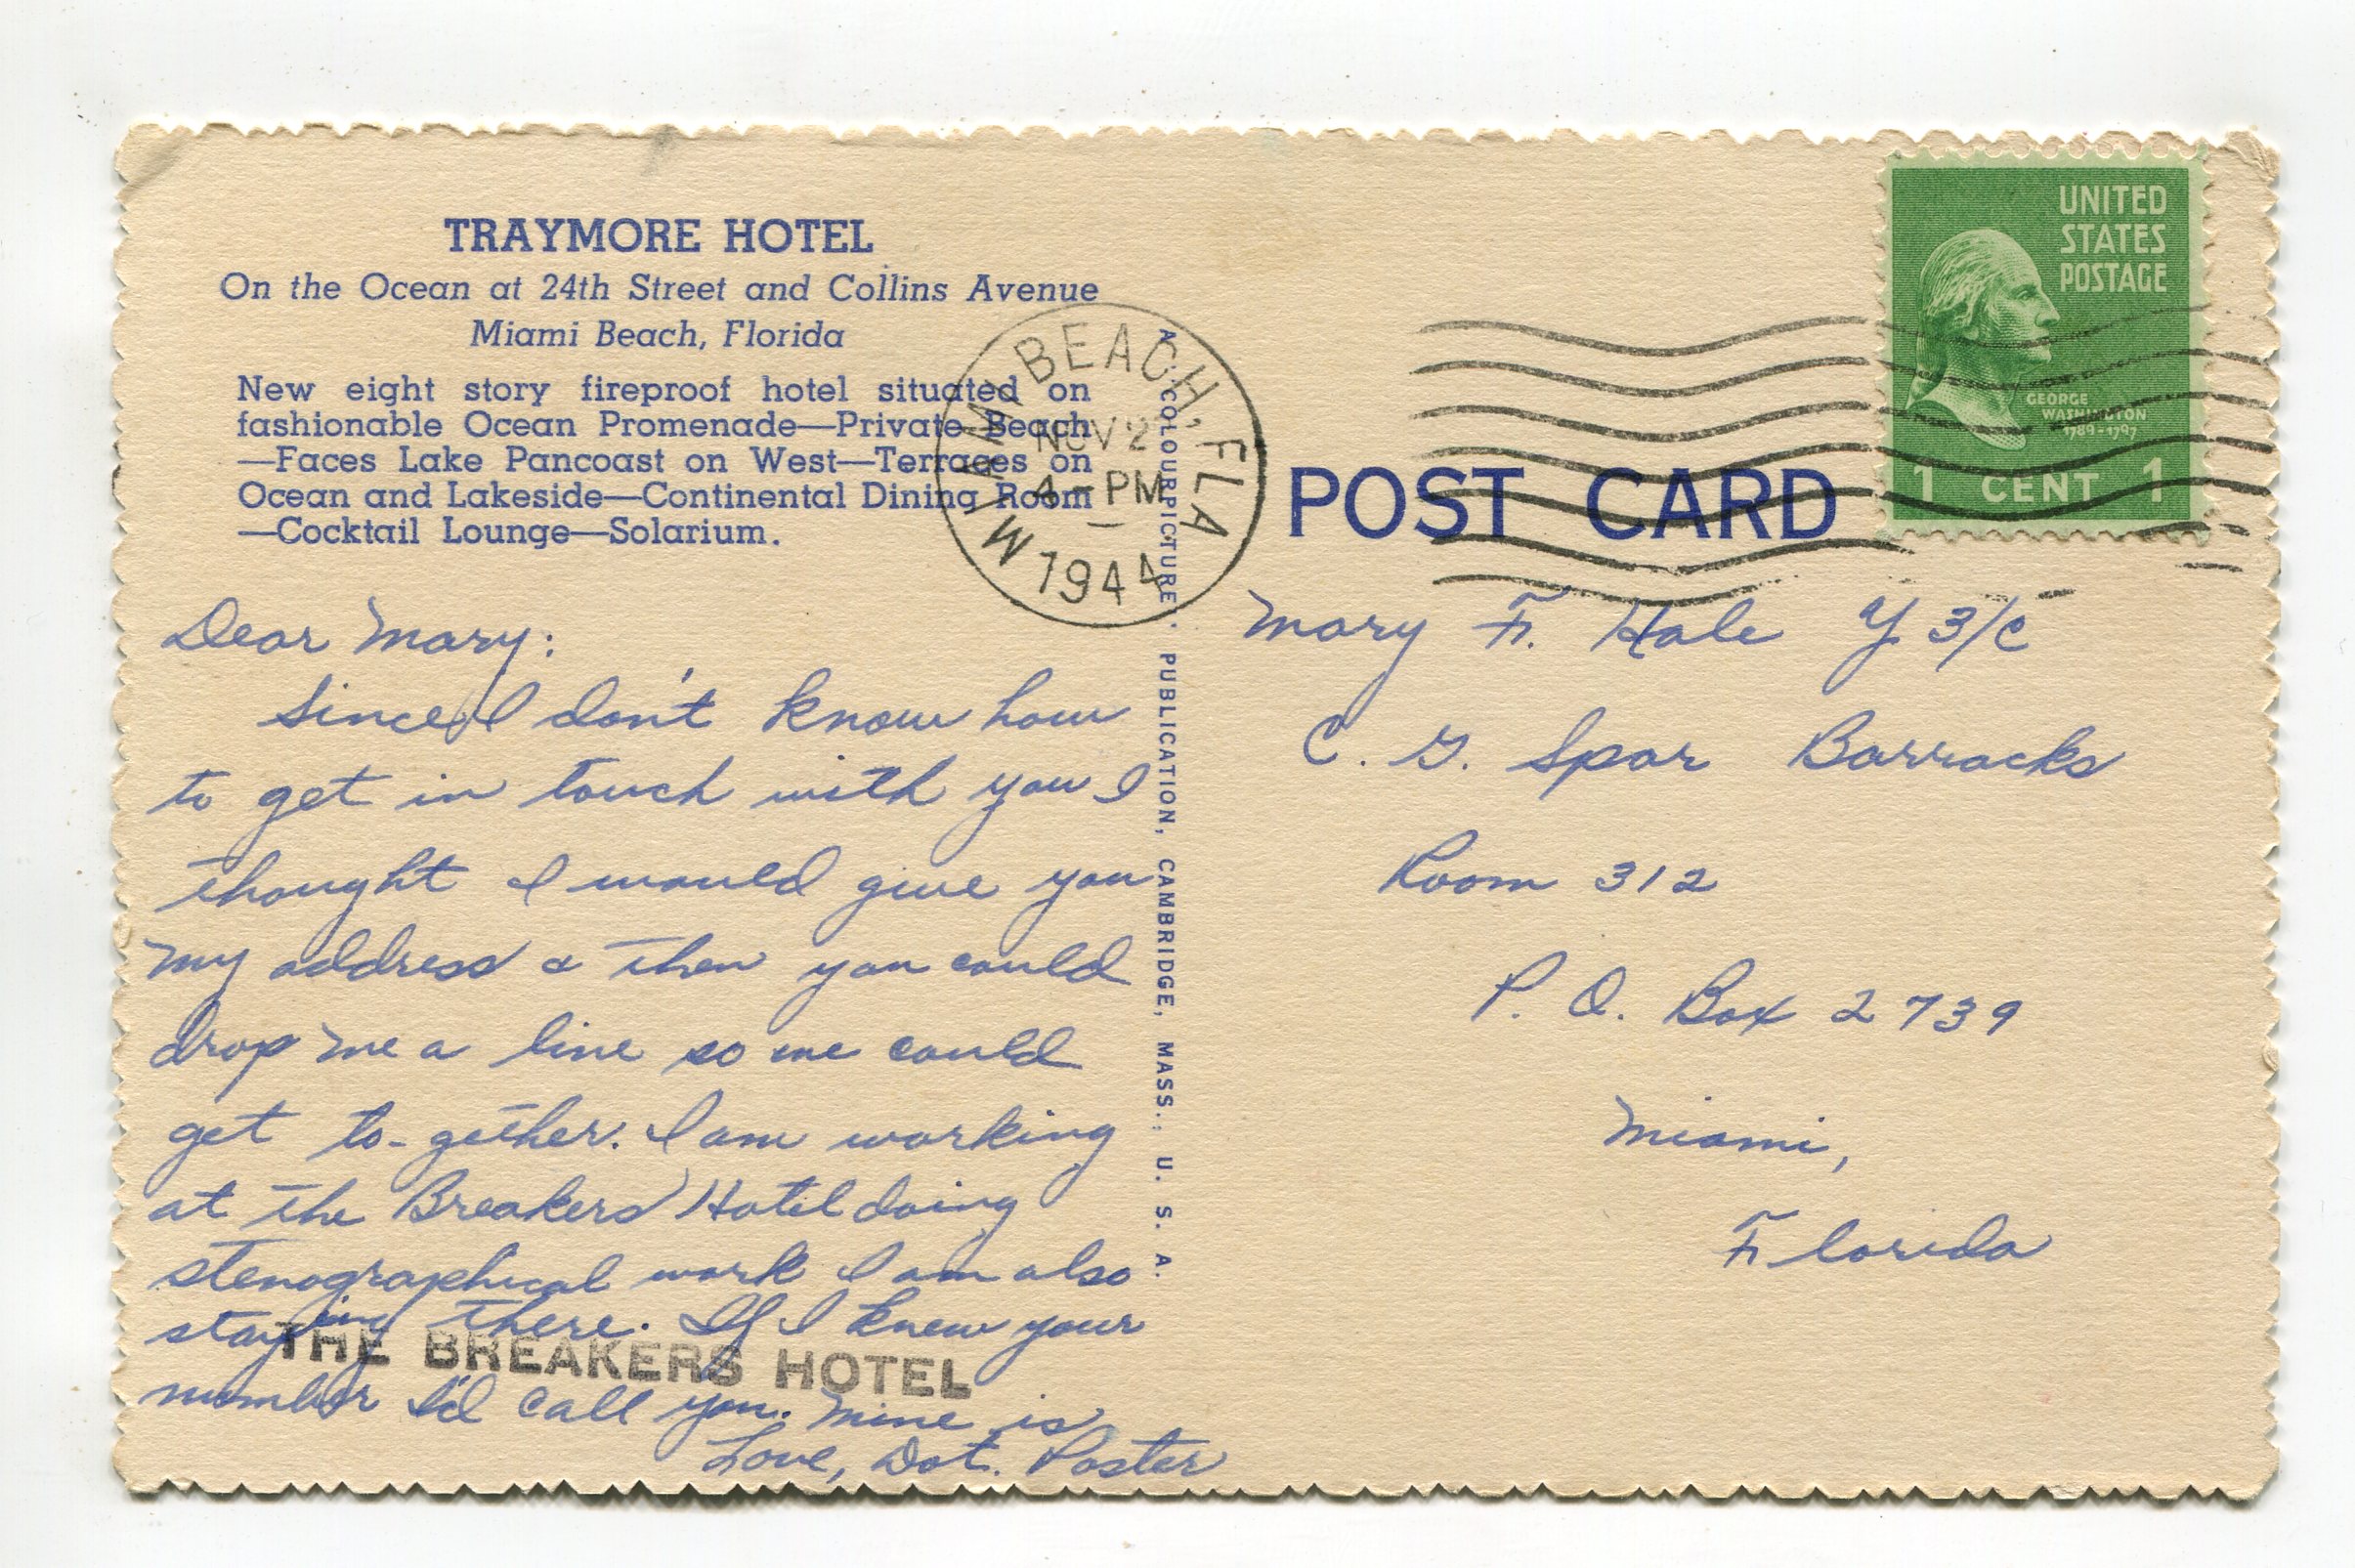 TRAYMORE HOTEL
On the Ocean at 24th Street and Collins Avenue
Miami Beach, Florida
New eight story fireproof hotel situated on
fashionable Ocean Promenade—Private Beach
—Faces Lake Pancoast on West—Terraces on
Ocean and Lakeside—Continental Dining Room
—Cocktail Lounge—Solarium.
Dear Mary:
Since I don't know how
to get in touch with you I
thought I would give you
my address & then you could
drop me a line so we could
get to-gether. I am working
at the Breakers Hotel doing
stenographical work I am also
staying there. If I knew your
THE BREAKERS HOTEL
number I'd call you. Mine is
Love, Dot.
MIAMI BEACH, FLA
NOV 2
4 - PM
1944
A "COLOURPICTURE" PUBLICATION, CAMBRIDGE, MASS., U. S. A.
POST CARD
UNITED
STATES
POSTAGE
GEORGE
WASHINGTON
1789-1797
1 CENT 1
Mary F. Hale Y 3/c
C. G. Spar Barracks
Room 312
P. O. Box 2739
Miami,
Florida